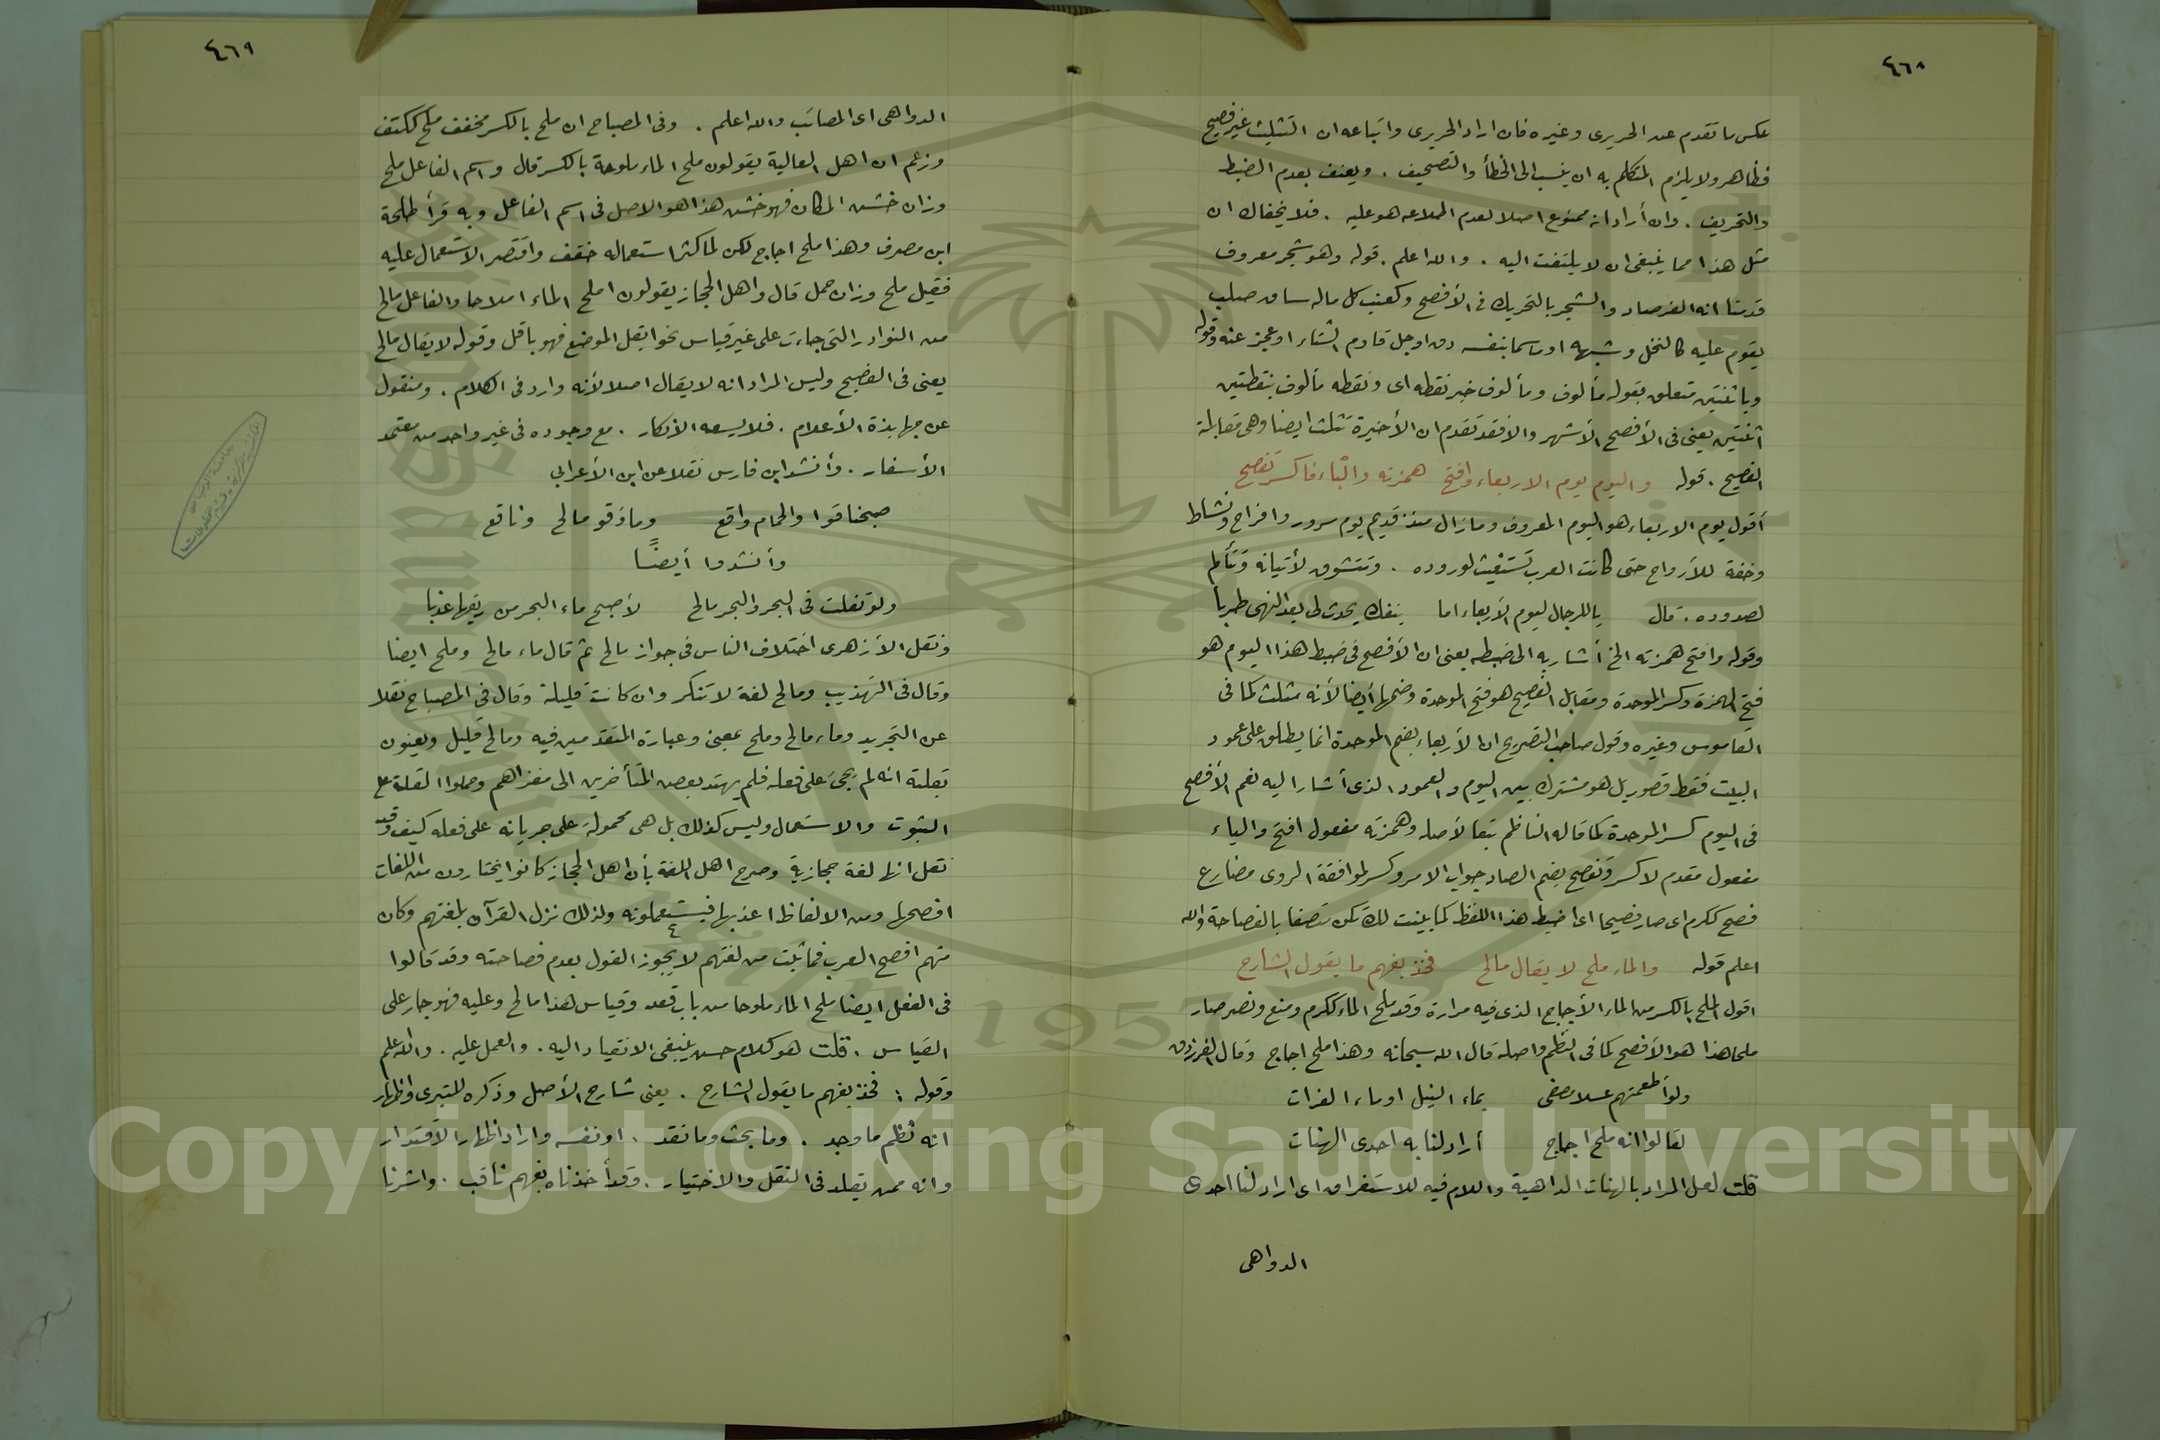 ٤٦٨
عكس ما تقدم عند الحريرى وغيره فان اراد الحريرى واتباعه ان التثليث غير فصيح
فظاهر ولا يلزم المتكلم به ان ينسب الى الخطأ والتصحيف . ويعنف بعدم الضبط
والتحريف . وان أراد انه ممنوع اصلا لعدم اطلاعه هو عليه . فلا يخفاك ان
مثل هذا مما ينبغى ان لا يلتفت اليه . والله اعلم . قوله وهو شجر معروف
قدمنا انه الفرصاد والشجر بالتحريك فى الأفصح وكعنب كل ماله ساق صلب
يقوم عليه كالنخل وشبهه او ما سما بنفسه دق او جل قاوم الشتاء او عجز عنه وقوله
وباثنتين متعلق بقوله مألوف ومألوف خبر نقطه اى ونقطه مألوف بنقطتين
اثنتين يعنى فى الأفصح الأشهر والا فقد تقدم ان الأخيرة تثلث ايضا وهى مقابلة
الفصيح . قوله واليوم يوم الاربعاء وافتح همزته والباء فاكسر تفصح
أقول يوم الاربعاء هو اليوم المعروف وما زال منذ قديم يوم سرور وافراح ونشاط
وخفة للأرواح حتى كانت العرب تستغيث لوروده . وتتشوق لأتيانه وتتألم
لصدوده . قال ياللرجال ليوم الأربعاء اما ينفك يحدث لى بعد النهى طربا
وقوله وافتح همزته الخ أشار به الى ضبطه يعنى ان الأفصح فى ضبط هذا اليوم هو
فتح الهمزة وكسر الموحدة ومقابل الفصيح هو فتح الموحدة وضمها أيضا لأنه مثلث كما فى
القاموس وغيره وقول صاحب التصريح ان الأربعاء بضم الموحدة انما يطلق على عمود
البيت فقط قصور بل هو مشترك بين اليوم والعمود الذى أشار اليه نعم الأفصح
فى اليوم كسر الموحدة كما قاله الناظم تبعا لأصله وهمزته مفعول افتح والباء
مفعول مقدم لاكسر وتفصح بضم الصاد جواب الامر وكسر لموافقة الروى مضارع
فصح ككرم اى صار فصيحا اى اضبط هذا اللفظ كما بينت لك تكن متصفا بالفصاحة والله
اعلم قوله والماء ملح لا يقال مالح فخذ بفهم ما يقول الشارح
اقول الملح بالكسر من الماء الأجاج الذى فيه مرارة وقد ملح الماء ككرم ومنع ونصر صار
ملحا هذا هو الأفصح كما فى النظم واصله قال الله سبحانه وهذا ملح اجاج وقال الفرزدق
ولو أطعمتهم عسلا مصفى بماء النيل او ماء الفرات
لقالوا انه ملح اجاج أراد لنا به احدى الهنات
قلت لعل المراد بالهنات الداهية واللام فيه للاستغراق اى اراد لنا احدى
الدواهى
٤٦٩
الدواهى اى المصائب والله اعلم . وفى المصباح ان ملح بالكسر مخفف ملح ككتف
وزعم ان اهل العالية يقولون ملح الماء ملوحة بالكسر قال واسم الفاعل ملح
وزان خشن المكان فهو خشن هذا هو الاصل فى اسم الفاعل وبه قرأ طلحة
ابن مصرف وهذا ملح اجاج لكن لما كثر استعماله خفف واقتصر الاستعمال عليه
فقيل ملح وزان حمل قال واهل الحجاز يقولون املح الماء املاحا والفاعل مالح
من النوادر التى جاءت على غير قياس نحو ابقل الموضع فهو باقل وقوله لا يقال مالح
يعنى فى الفصيح وليس المراد انه لا يقال اصلا لأنه وارد فى الكلام . ومنقول
عن جهابذة الأعلام . فلا يسعه الانكار . مع وجوده فى غير واحد من معتمد
الأسفار . وأنشد ابن فارس نقلا عن ابن الأعرابى
صبحنا قوا والحمام واقع وماء قو مالح وناقع
وأنشدوا أيضًا
ولو تفلت فى البحر والبحر مالح لأصبح ماء البحر من ريقها عذبا
ونقل الأزهرى اختلاف الناس فى جواز مالح ثم قال ماء مالح وملح ايضا
وقال فى التهذيب ومالح لغة لا تنكر وان كانت قليلة وقال فى المصباح نقلا
عن التجريد وماء مالح وملح بمعنى وعبارة المتقدمين فيه ومالح قليل ويعنون
بقلته انه لم يجئ على فعله فلم يهتد بعض المتأخرين الى مغزاهم وحملوا القلة على
الثبوت والاستعمال وليس كذلك بل هى محمولة على جريانه على فعله كيف وقد
نقل انها لغة حجازية وصرح اهل اللغة بأن اهل الحجاز كانوا يختارون من اللغات
افصحها ومن الالفاظ اعذبها فيستعملونه ولذلك نزل القرآن بلغتهم وكان
منهم افصح العرب فما ثبت من لغتهم لا يجوز القول بعدم فصاحته وقد قالوا
فى الفعل ايضا ملح الماء ملوحا من باب قعد وقياس هذا مالح وعليه فهو جار على
القياس . قلت هو كلام حسن ينبغى الانقياد اليه . والعمل عليه . والله اعلم
وقوله : فخذ بفهم ما يقول الشارح . يعنى شارح الأصل وذكره للتبرى واظهار
انه نظم ما وجد . وما بحث وما نقد . او نفسه واراد اظهار الاقتدار
وانه ممن يقلد فى النقل والاختيار . وقد أخذناه بفهم ثاقب . واشرنا
Copyright © King Saud University
1957